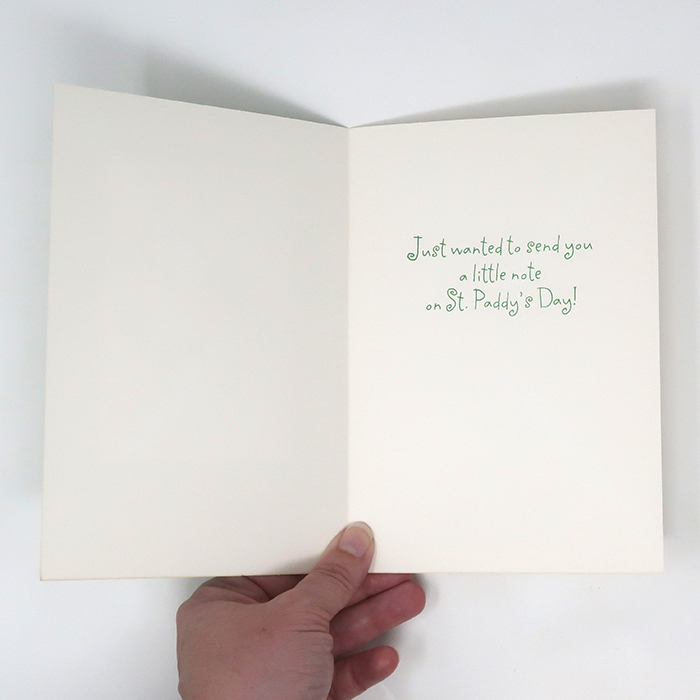 Just wanted to send you
a little note
on St. Paddy's Day!